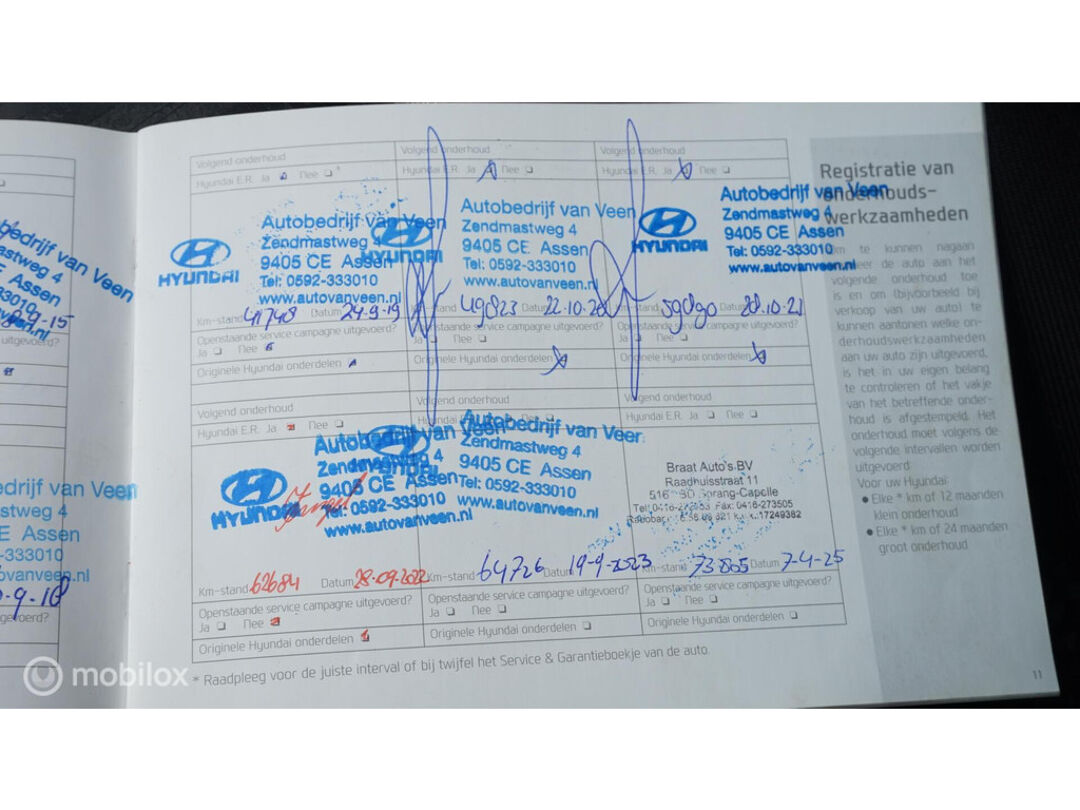 Volgend onderhoud
Hyundai E.R. Ja Nee
HYUNDAI
Autobedrijf van Veen
Zendmastweg 4
9405 CE Assen
Tel: 0592-333010
www.autovanveen.nl
Km-stand 41748 Datum 24-9-19
Openstaande service campagne uitgevoerd?
Ja Nee
Originele Hyundai onderdelen
Volgend onderhoud
Hyundai E.R. Ja Nee
HYUNDAI
Autobedrijf van Veen
Zendmastweg 4
9405 CE Assen
Tel: 0592-333010
www.autovanveen.nl
Km-stand Datum 22-10-20
Openstaande service campagne uitgevoerd?
Ja Nee
Originele Hyundai onderdelen
Volgend onderhoud
Hyundai E.R. Ja Nee
HYUNDAI
Autobedrijf van Veen
Zendmastweg 4
9405 CE Assen
Tel: 0592-333010
www.autovanveen.nl
Datum 28.10.21
Openstaande service campagne uitgevoerd?
Ja Nee
Originele Hyundai onderdelen
Volgend onderhoud
Hyundai E.R. Ja Nee
HYUNDAI
Autobedrijf van Veen
Zendmastweg 4
9405 CE Assen
Tel: 0592-333010
www.autovanveen.nl
Km-stand 62684 Datum 28-09-2022
Openstaande service campagne uitgevoerd?
Ja Nee
Originele Hyundai onderdelen
Volgend onderhoud
Hyundai E.R. Ja Nee
Autobedrijf van Veen
Zendmastweg 4
9405 CE Assen
Tel: 0592-333010
www.autovanveen.nl
Km-stand 64726 Datum 19-9-2023
Openstaande service campagne uitgevoerd?
Ja Nee
Originele Hyundai onderdelen
Volgend onderhoud
Hyundai E.R. Ja Nee
Braat Auto's.BV
Raadhuisstraat 11
Sprang-Capelle
Fax: 0416-273505
17249382
Km-stand Datum 7-4-25
Openstaande service campagne uitgevoerd?
Ja Nee
Originele Hyundai onderdelen
* Raadpleeg voor de juiste interval of bij twijfel het Service & Garantieboekje van de auto.
Registratie van
onderhouds-
werkzaamheden
Om te kunnen nagaan
wanneer de auto aan het
volgende onderhoud toe
is en om (bijvoorbeeld bij
verkoop van uw auto) te
kunnen aantonen welke on-
derhoudswerkzaamheden
aan uw auto zijn uitgevoerd,
is het in uw eigen belang
te controleren of het vakje
van het betreffende onder-
houd is afgestempeld. Het
onderhoud moet volgens de
volgende intervallen worden
uitgevoerd
Voor uw Hyundai:
● Elke * km of 12 maanden
klein onderhoud
● Elke * km of 24 maanden
groot onderhoud
11
mobilox